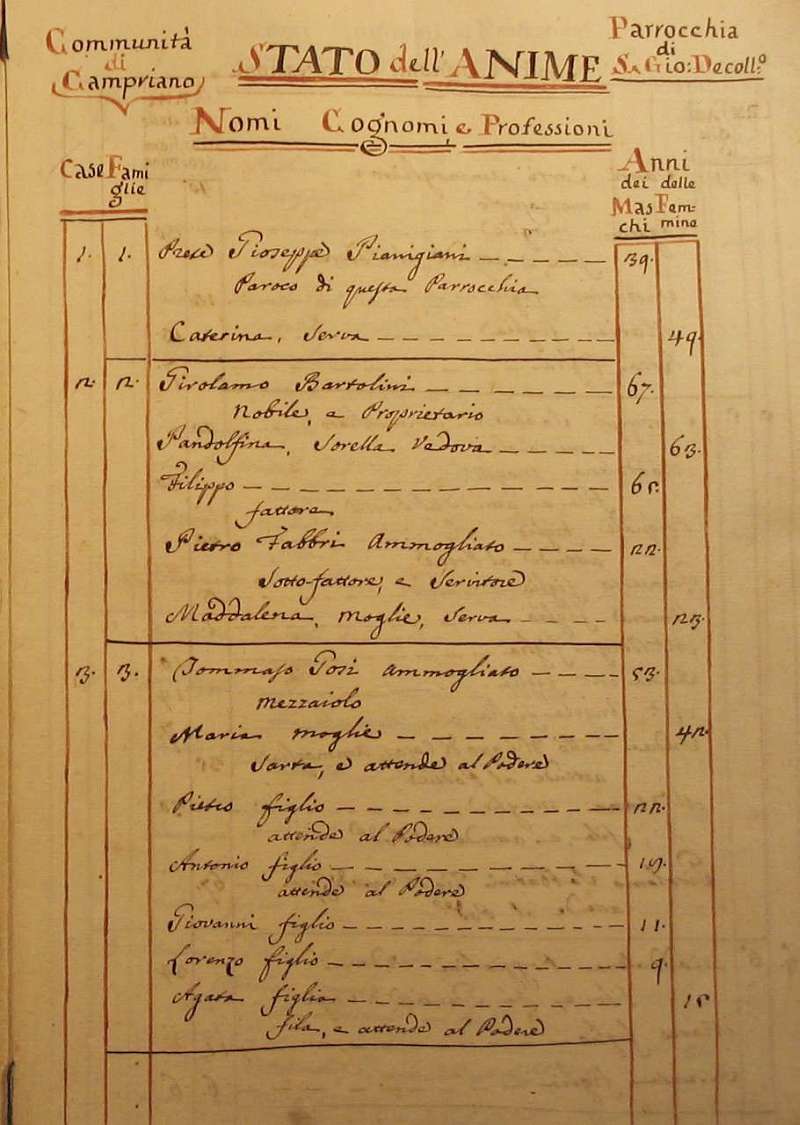 Communità
di
Campriano
STATO dell' ANIME
Parrocchia
di
S. Gio: Decoll.º
Nomi Cognomi e Professioni
Case Fami
glie
Anni
dei delle
Mas Fem-
chi mine
1. 1. Prete Gioseppe Pianigiani 39.
Paroco di questa Parrocchia
Caterina, Serva 49.
2. 2. Girolamo Bartolini 67.
Nobile, e Proprietario
Pandolfina, Sorella Vedova 63.
Filippo
fattore
Pietro Fabbri Ammogliato 22.
Sotto-fattore, e Servitore
Maddalena, Moglie, Serva 23.
3. 3. Tommaso Posi Ammogliato 53.
Mezzaiolo
Maria Moglie 42.
Sarta, e attende al Podere
Pietro figlio 22.
attende al Podere
Antonio figlio 19.
attende al Podere
Giovanni figlio 11.
Lorenzo figlio 9.
Agata figlia 15
fila, e attende al Podere